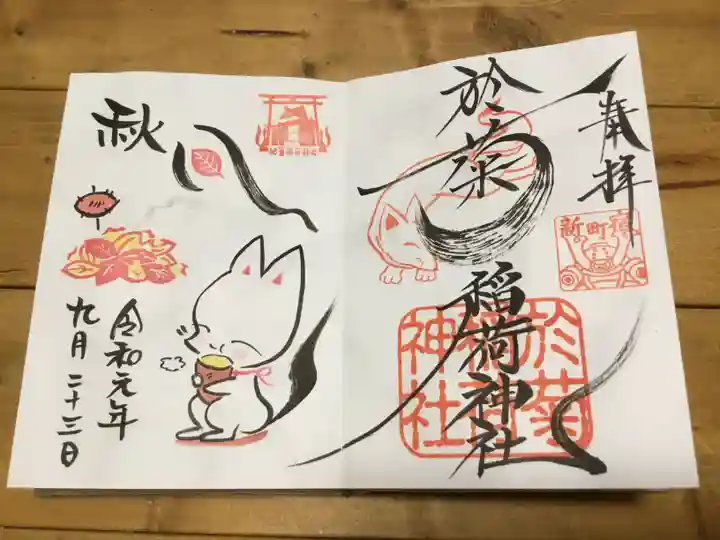 奉拝
新町宿
於菊
稲荷神社
於菊
稲荷
神社
秋
令和元年
九月二十三日